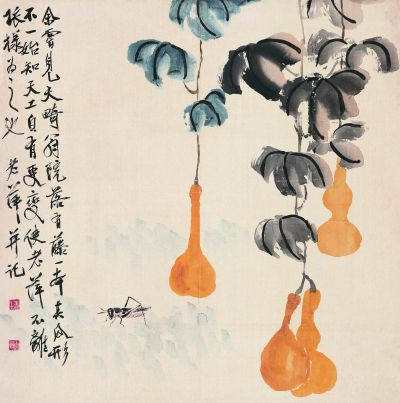 余曾見天畸翁院落有藤一本其瓜形
不一始知天工自有更變使老萍不離
依樣為之也
老萍并記